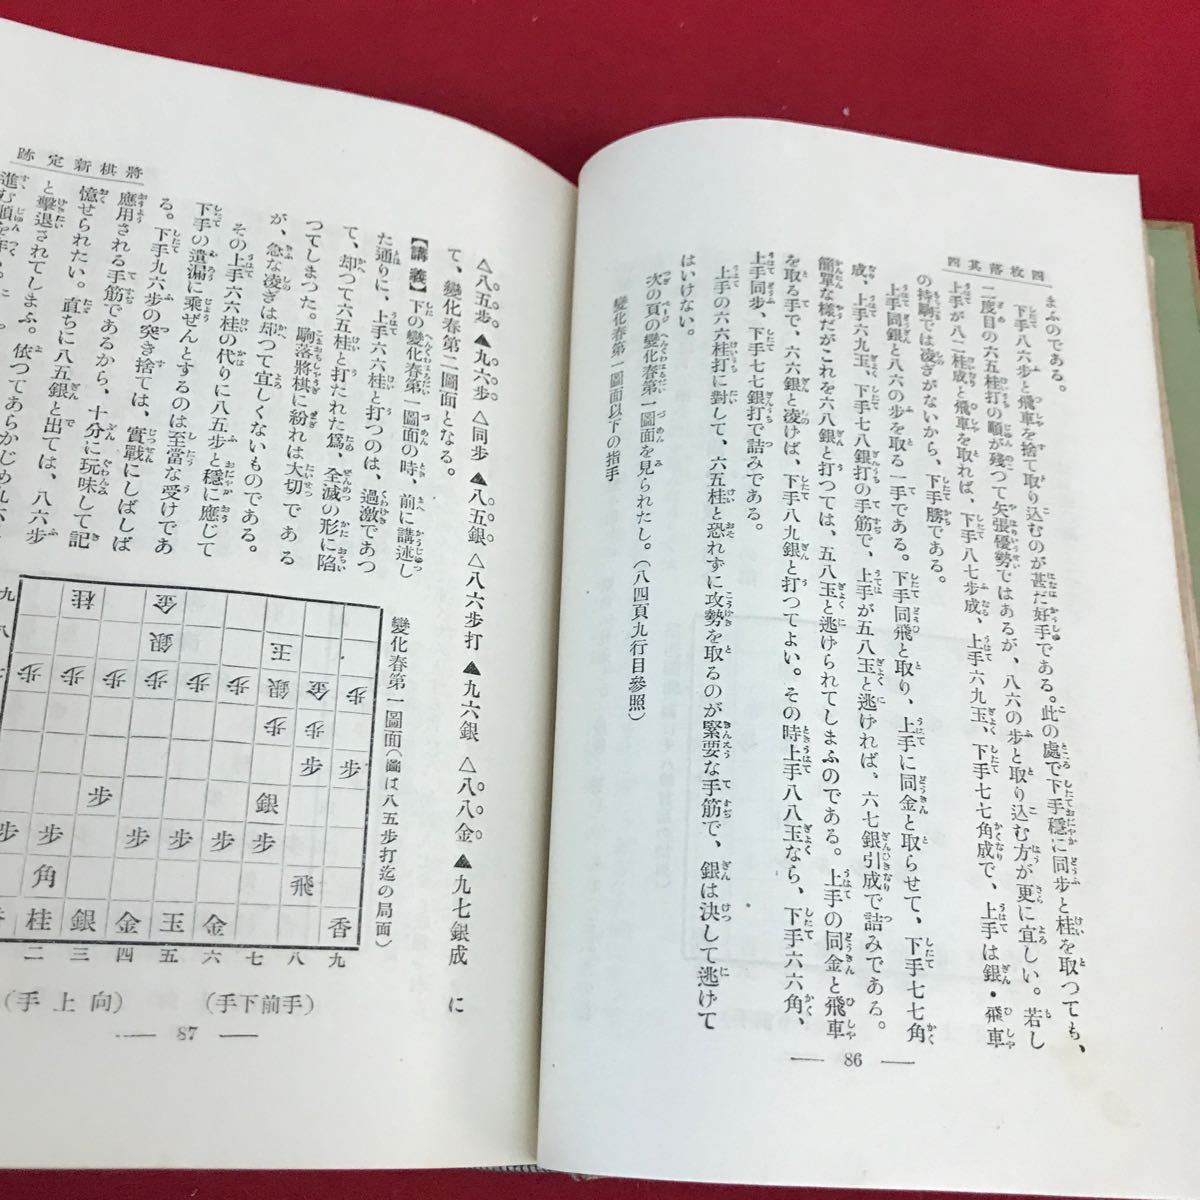 四枚落其四
まふのである。
下手八六歩と飛車を捨て取り込むのが甚だ好手である。此の處で下手穩に同歩と桂を取つても、
二度目の六五桂打の順が殘つて矢張優勢ではあるが、八六の歩と取り込む方が更に宜しい。若し
上手が八二桂成と飛車を取れば、下手八七歩成、上手六九玉、下手七七角成で、上手は銀・飛車
の持駒では凌ぎがないから、下手勝である。
上手同銀と八六の歩を取る一手である。下手同飛と取り、上手に同金と取らせて、下手七七角
成、上手六九玉、下手七八銀打の手筋で、上手が五八玉と逃ければ、六七銀引成で詰みである。
簡單な樣だがこれを六八銀と打つては、五八玉と逃けられてしまふのである。上手の同金と飛車
を取る手で、六六銀と凌けば、下手八九銀と打つてよい。その時上手八八玉なら、下手六六角、
上手同歩、下手七七銀打で詰みである。
上手の六六桂打に對して、六五桂と恐れずに攻勢を取るのが緊要な手筋で、銀は決して逃けて
はいけない。
次の頁の變化春第一圖面を見られたし。(八四頁九行目參照)
變化春第一圖面以下の指手
— 86 —
將棋新定跡
△八五歩。▲九六歩 △同歩 ▲八五銀。△八六歩打 ▲九六銀 △八八金。▲九七銀成 に
て、變化春第二圖面となる。
【講義】下の變化春第一圖面の時、前に講述し
た通りに、上手六六桂と打つのは、過激であつ
て、却つて六五桂と打たれた爲、全滅の形に陷
つてしまつた。駒落將棋に紛れは大切である
が、急な凌ぎは却つて宜しくないものである。
その上手六六桂の代りに八五歩と穩に應じて
下手の遺漏に乘ぜんとするのは至當な受けであ
る。下手九六歩の突き捨ては、實戰にしばしば
應用される手筋であるから、十分に玩味して記
憶せられたい。直ちに八五銀と出ては、八六歩
と擊退されてしまふ。依つてあらかじめ九六
進む順を
變化春第一圖面(圖は八五歩打迄の局面)
九 八
桂 金
銀 玉
歩 歩 歩 歩 歩 歩 銀 金 歩
歩 歩
歩 歩
歩 銀
歩 歩 歩 歩 歩 歩
角 飛
香 桂 銀 金 玉 金 香
二 三 四 五 六 七 八 九
(手上向) (手下前手)
— 87 —